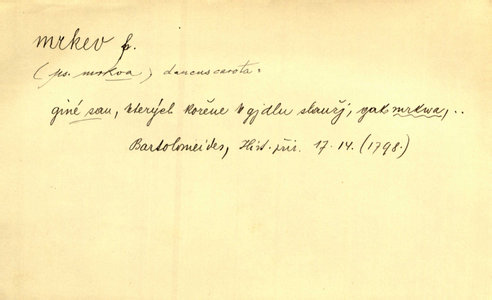 mrkev f.
(ps. mrkva) daucus carota:
giné sau, kterých kořène k gjdlu slaužj, yak mrkwa, ..
Bartolomeides, Hist. při. 17. 14. (1798.)